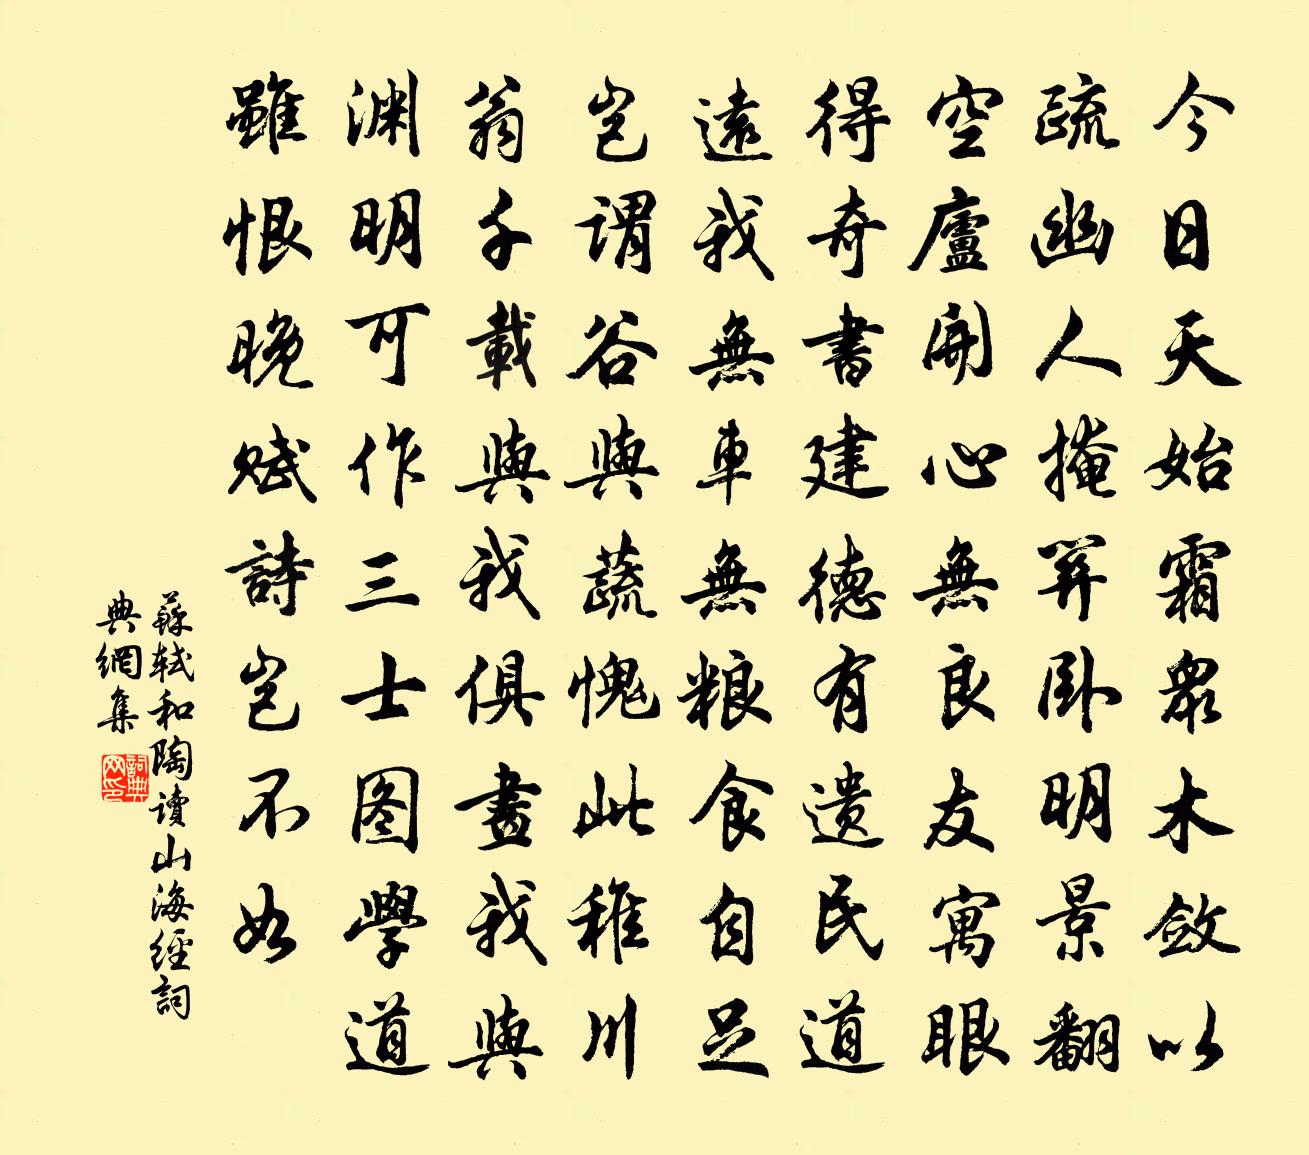 今日天始霜眾木斂以
疏幽人掩关卧明景翻
空廬開心無良友寓眼
得奇書建德有遗民道
遠我無車無粮食自足
豈謂谷與蔬愧此稚川
翁千載與我俱畫我與
渊明可作三士图學道
雖恨晚賦詩豈不如
蘇軾和陶讀山海經詞
典網集
詞典
网印